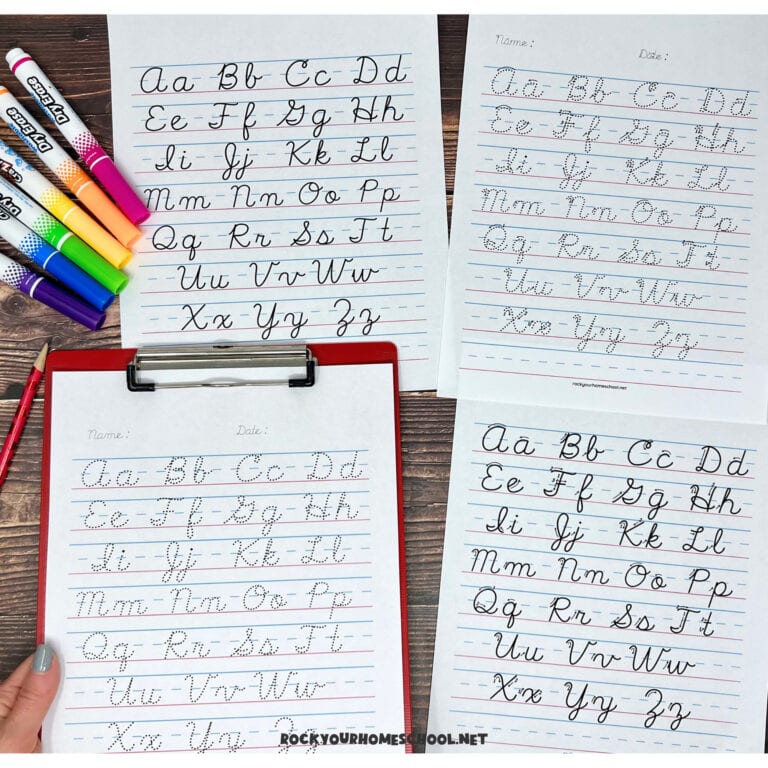 Dry Erase
Dry Erase
Aa Bb Cc Dd
Ee Ff Gg Hh
Ii Jj Kk Ll
Mm Nn Oo Pp
Qq Rr Ss Tt
Uu Vv Ww
Xx Yy Zz
Name: Date:
Aa Bb Cc Dd
Ee Ff Gg Hh
Ii Jj Kk Ll
Mm Nn Oo Pp
Qq Rr Ss Tt
Uu Vv Ww
Xx Yy Zz
rockyourhomeschool.net
Name: Date:
Aa Bb Cc Dd
Ee Ff Gg Hh
Ii Jj Kk Ll
Mm Nn Oo Pp
Qq Rr Ss Tt
Uu Vv Ww
Xx Yy Zz
Aa Bb Cc Dd
Ee Ff Gg Hh
Ii Jj Kk Ll
Mm Nn Oo Pp
Qq Rr Ss Tt
Uu Vv Ww
Xx Yy Zz
ROCKYOURHOMESCHOOL.NET